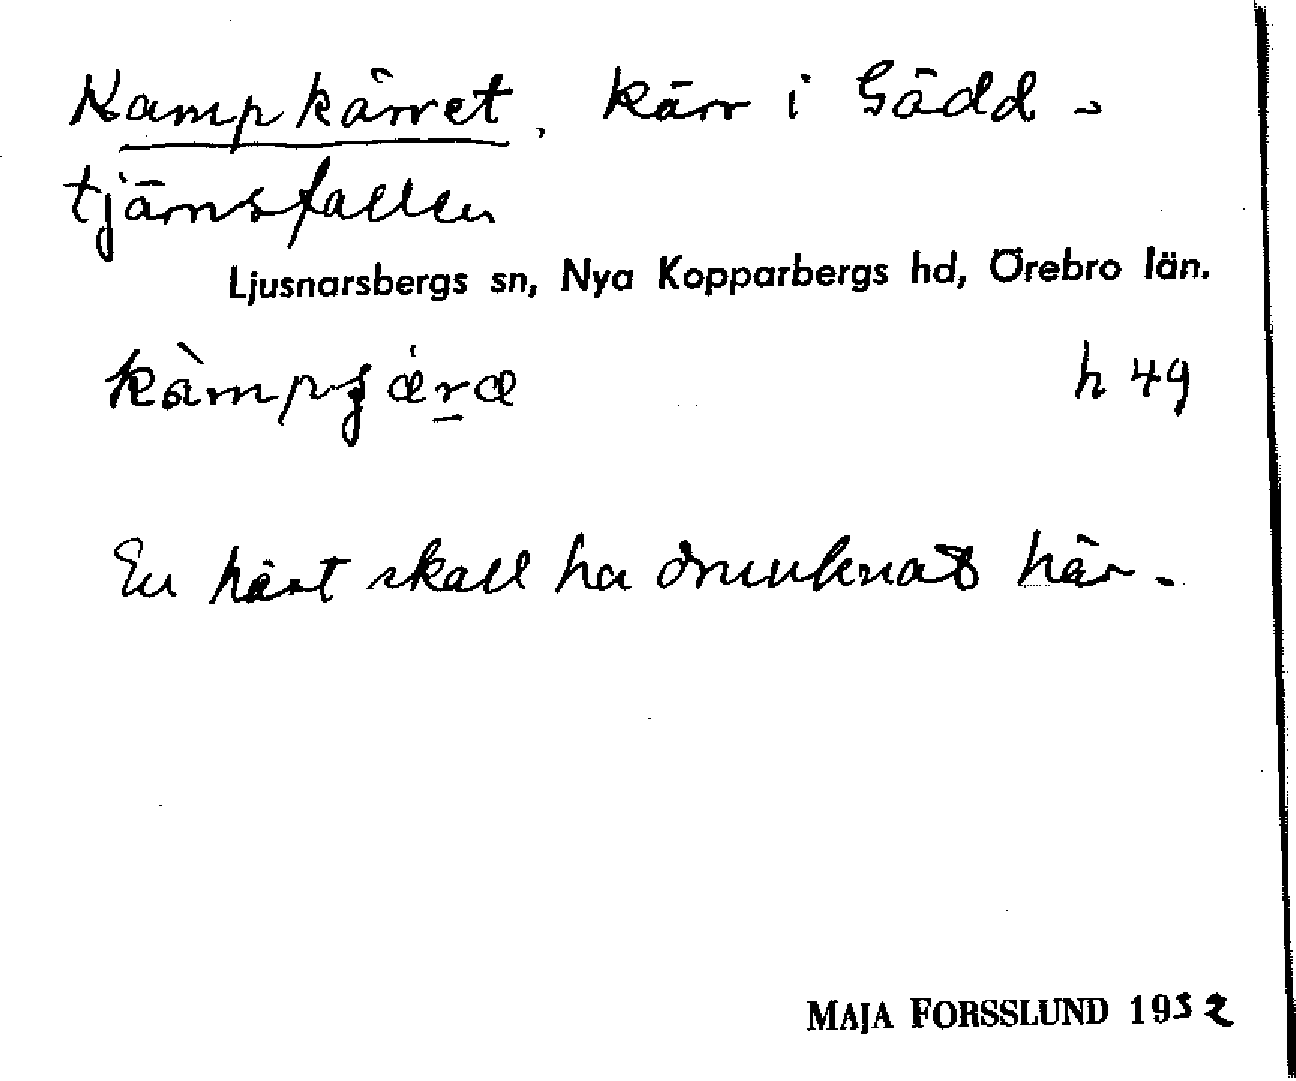 Kampkärret, kärr i Gädd-
tjärnsfallen
Ljusnarsbergs sn, Nya Kopparbergs hd, Örebro län.
kàmpʝǽræ h 49
En häst skall ha drunknat här.
MAJA FORSSLUND 1932